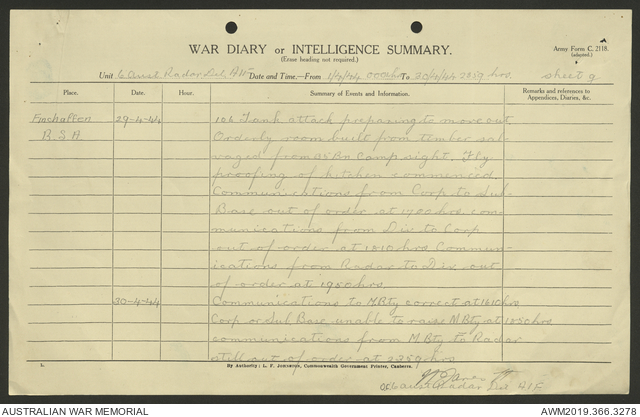 WAR DIARY or INTELLIGENCE SUMMARY.
(Erase heading not required.)
Army Form C. 2118.
(adapted.)
Unit 6 Aust. Radar Det, AIF Date and Time.—From 1/4/44 0000hrs To 30/4/44 2359 hrs. sheet 9
Place. Date. Hour. Summary of Events and Information. Remarks and references to Appendices, Diaries, &c.
Finchafen 29-4-44 106 Tank attack preparing to move out
B.S.A Orderly room built from timber sal-
vaged from Bn Camp sight. Fly
proofing of kitchen commenced.
Communications from Corp to Sub
Base out of order at 1700 hrs. com-
munications from Div to Corp
out of order at 1810 hrs. Commun-
ications from Radar to Div out
of order at 1950 hrs.
30-4-44 Communications to M.Bty correct at 1610 hrs
Corp or Sub Base unable to raise M.Bty at 1850 hrs
communications from M.Bty to Radar
still out of order at 2359 hrs
By Authority: L. F. Johnston, Commonwealth Government Printer, Canberra.
OC 6 Aust Radar Det AIF
AUSTRALIAN WAR MEMORIAL
AWM2019.366.3278